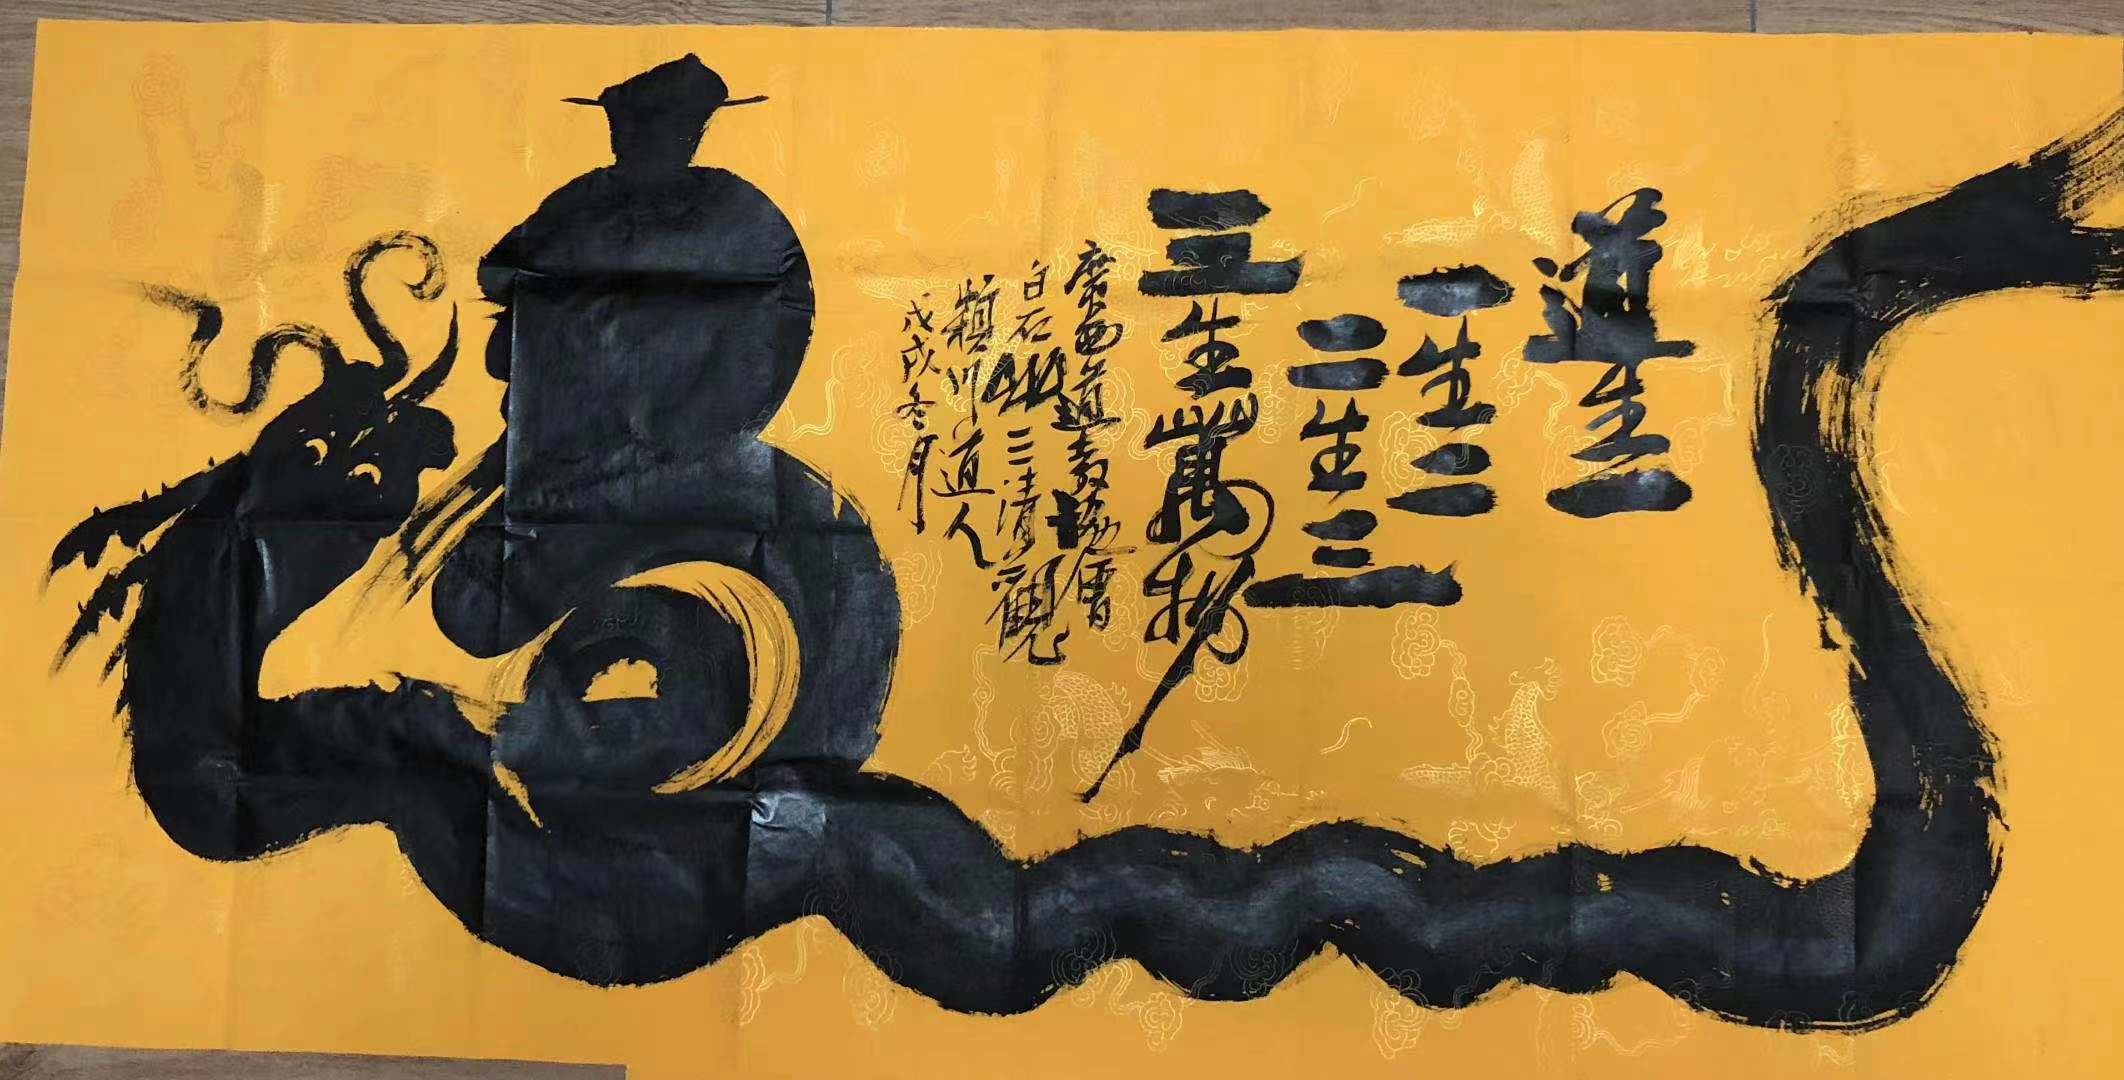 道生一
一生二
二生三
三生萬物
廣西道教協會
白石山三清觀
穎川道人
戊戌冬月